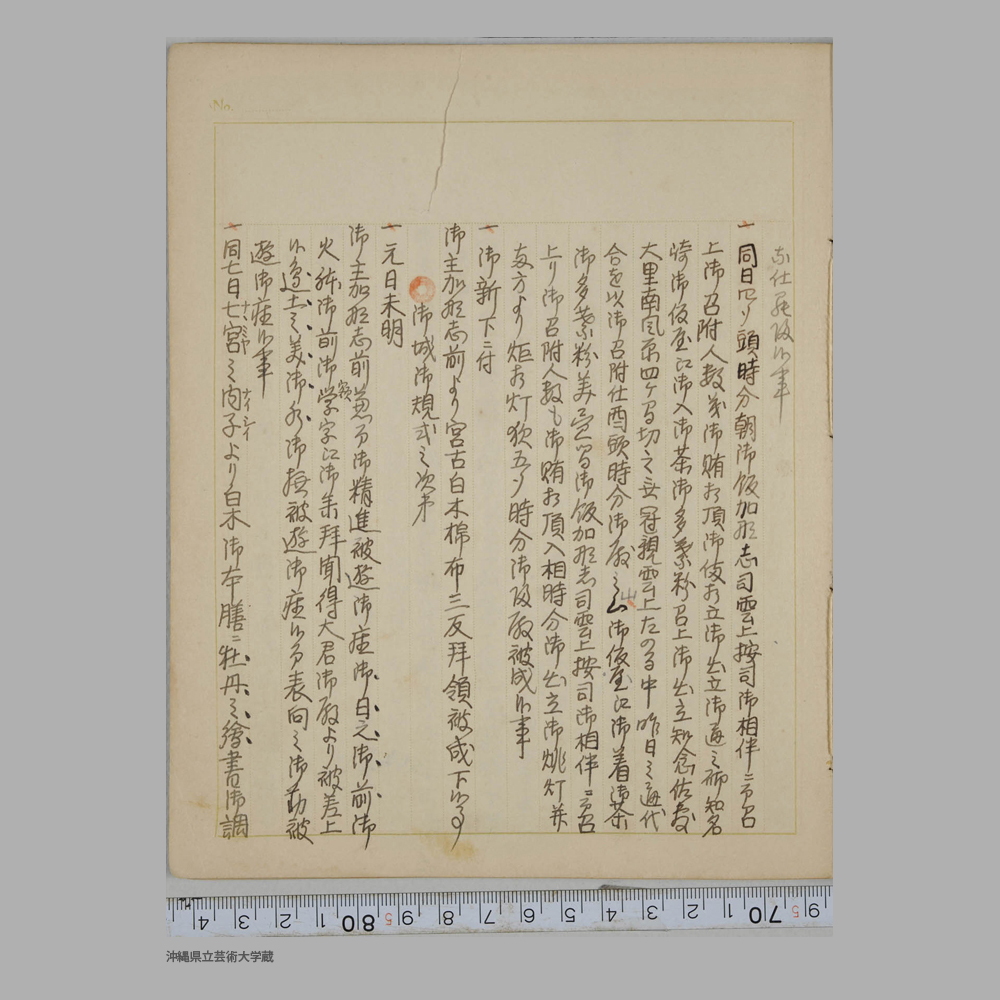 一同日四ツ頭時分朝御飯加那志司雲上按司御相伴ニ而召
上御召附人数茂御賄被頂御仮被立御出立御通之御知名
崎御仮屋江御入御茶御多葉粉召上御出立知念佐敷
大里南風原四ヶ間切之無冠親雲上たのる中昨日之通代
合を以御召附仕酉頭時分御殿之御仮屋江御着御茶
御多葉粉美御飯加那志司雲上按司御相伴ニ而召
上り御召附人数も御賄被頂入相時分御出立御挑灯并
両方より炬灯五ツ時分御殿被成候事
一御新下ニ付
御主加那志前より宮古白木棉布三反拝領被成下候事
御城御規式之次第
一元日未明
御主加那志前御精進被遊御座御日之御前御
火鉢御前御江御拝聞得大君御殿より被差上
候之美御水御撫被遊御座候而表向之御勤被
遊御座候事
一同七日七宮之内子より白木御本膳ニ牡丹之繪書御調
ナヽミヤ
ナイシイ
No.
4 3 2 1 80 9 8 7 6 5 4 3 2 1 70 9
沖縄県立芸術大学蔵